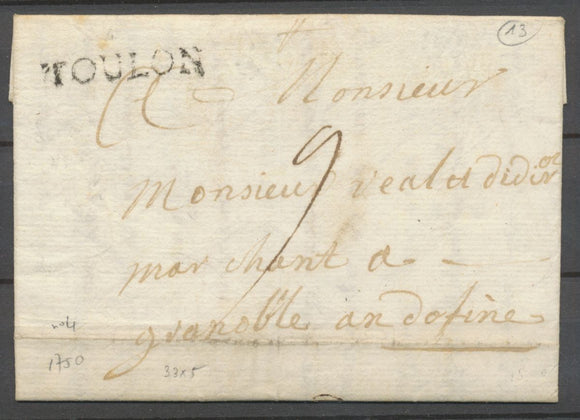 13
TOULON
A Monsieur
Monsieur real et didier
marchant a
grenoble an dofine
9
1750
33x5